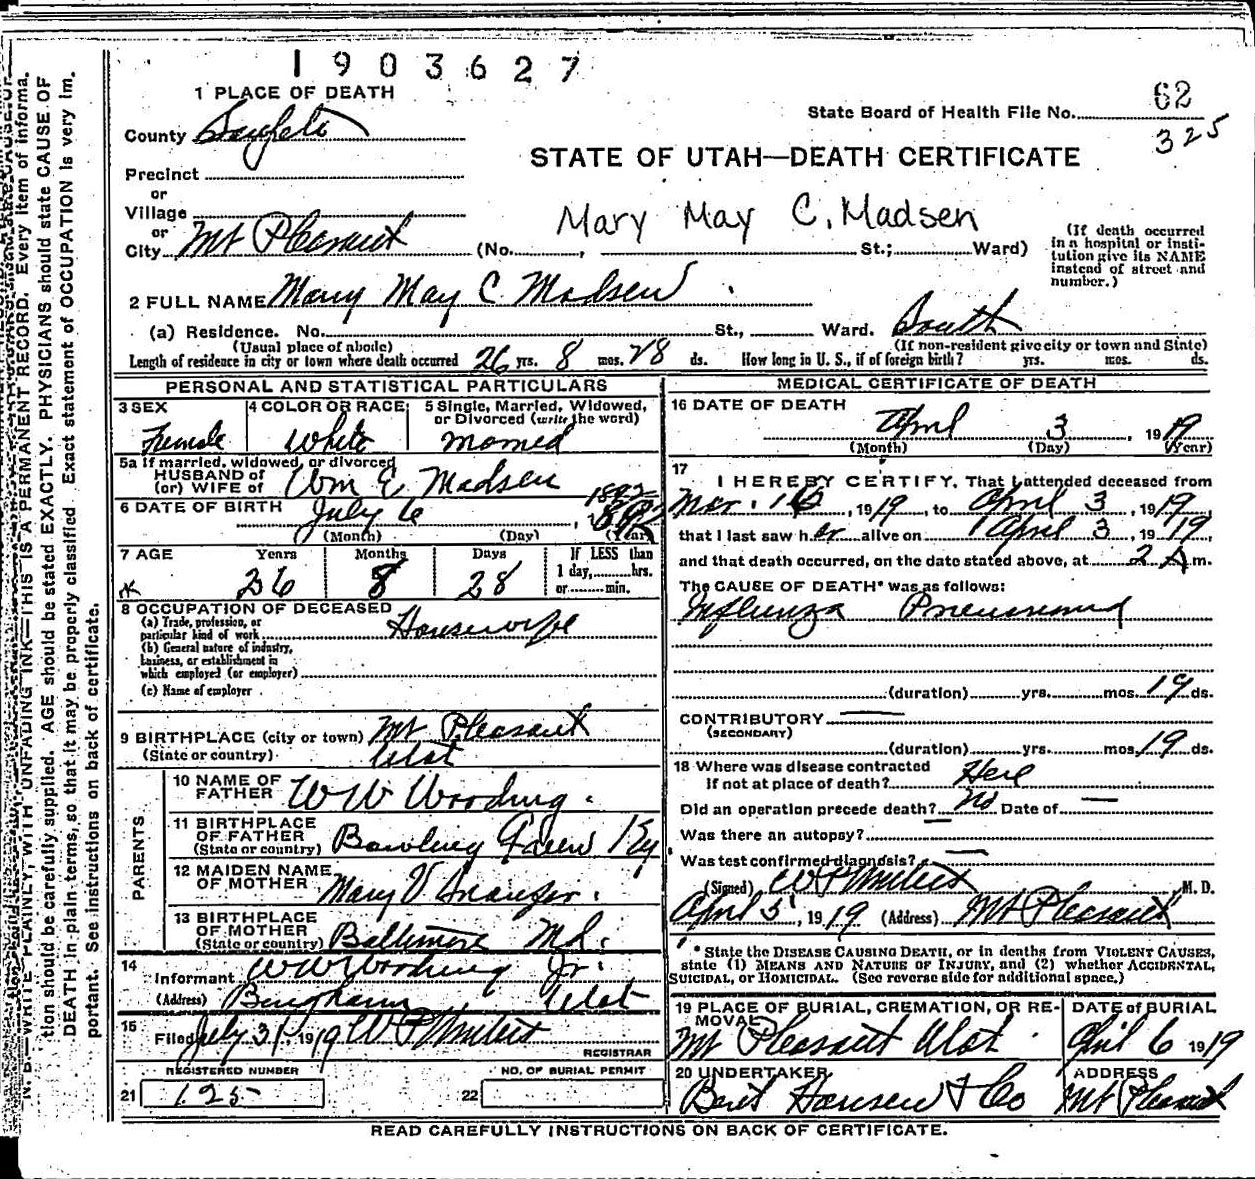 1903627
62
325
1 PLACE OF DEATH
State Board of Health File No.
County Sanpete
STATE OF UTAH—DEATH CERTIFICATE
Precinct
or
Village
or
Mary May C. Madsen
City Mt Pleasant (No. , St.; Ward)
(If death occurred in a hospital or institution give its NAME instead of street and number.)
2 FULL NAME Mary May C Madsen
(a) Residence. No. St., Ward. South
(Usual place of abode) (If non-resident give city or town and State)
Length of residence in city or town where death occurred 26 yrs. 8 mos. 28 ds. How long in U. S., if of foreign birth? yrs. mos. ds.
PERSONAL AND STATISTICAL PARTICULARS
3 SEX Female
4 COLOR OR RACE White
5 Single, Married, Widowed, or Divorced (write the word) Married
5a If married, widowed, or divorced
HUSBAND of
(or) WIFE of Wm E Madsen
6 DATE OF BIRTH July 6, 1892
(Month) (Day) (Year)
7 AGE Years Months Days If LESS than
26 8 28 1 day, hrs.
or min.
8 OCCUPATION OF DECEASED
(a) Trade, profession, or
particular kind of work Housewife
(b) General nature of industry,
business, or establishment in
which employed (or employer)
(c) Name of employer
9 BIRTHPLACE (city or town) Mt Pleasant
(State or country) Utah
PARENTS
10 NAME OF FATHER W W Woodring
11 BIRTHPLACE OF FATHER
(State or country) Bowling Green Ky
12 MAIDEN NAME OF MOTHER Mary V
13 BIRTHPLACE OF MOTHER
(State or country) Baltimore Md.
14 Informant W W Woodring Jr.
(Address) Bingham Utah
15 Filed July 31, 1919 W P Winters
REGISTRAR
REGISTERED NUMBER NO. OF BURIAL PERMIT
21 125 22
MEDICAL CERTIFICATE OF DEATH
16 DATE OF DEATH
April 3, 1919
(Month) (Day) (Year)
17
I HEREBY CERTIFY, That I attended deceased from
Mar. 16, 1919, to April 3, 1919,
that I last saw her alive on April 3, 1919,
and that death occurred, on the date stated above, at 2 A m.
The CAUSE OF DEATH* was as follows:
Influenza Pneumonia
(duration) yrs. mos. 19 ds.
CONTRIBUTORY
(SECONDARY)
(duration) yrs. mos. 19 ds.
18 Where was disease contracted
if not at place of death? Here
Did an operation precede death? No Date of —
Was there an autopsy?
Was test confirmed diagnosis?
(Signed) W P Winters M. D.
April 5, 1919 (Address) Mt Pleasant
* State the DISEASE CAUSING DEATH, or in deaths from VIOLENT CAUSES,
state (1) MEANS AND NATURE OF INJURY, and (2) whether ACCIDENTAL,
SUICIDAL, or HOMICIDAL. (See reverse side for additional space.)
19 PLACE OF BURIAL, CREMATION, OR REMOVAL DATE OF BURIAL
Mt Pleasant Utah April 6 1919
20 UNDERTAKER ADDRESS
Hansen & Co Mt Pleasant
READ CAREFULLY INSTRUCTIONS ON BACK OF CERTIFICATE.
N. B.—WRITE PLAINLY, WITH UNFADING INK—THIS IS A PERMANENT RECORD. Every item of information
should be carefully supplied. AGE should be stated EXACTLY. PHYSICIANS should state CAUSE OF
DEATH in plain terms, so that it may be properly classified. Exact statement of OCCUPATION is very important.
See instructions on back of certificate.